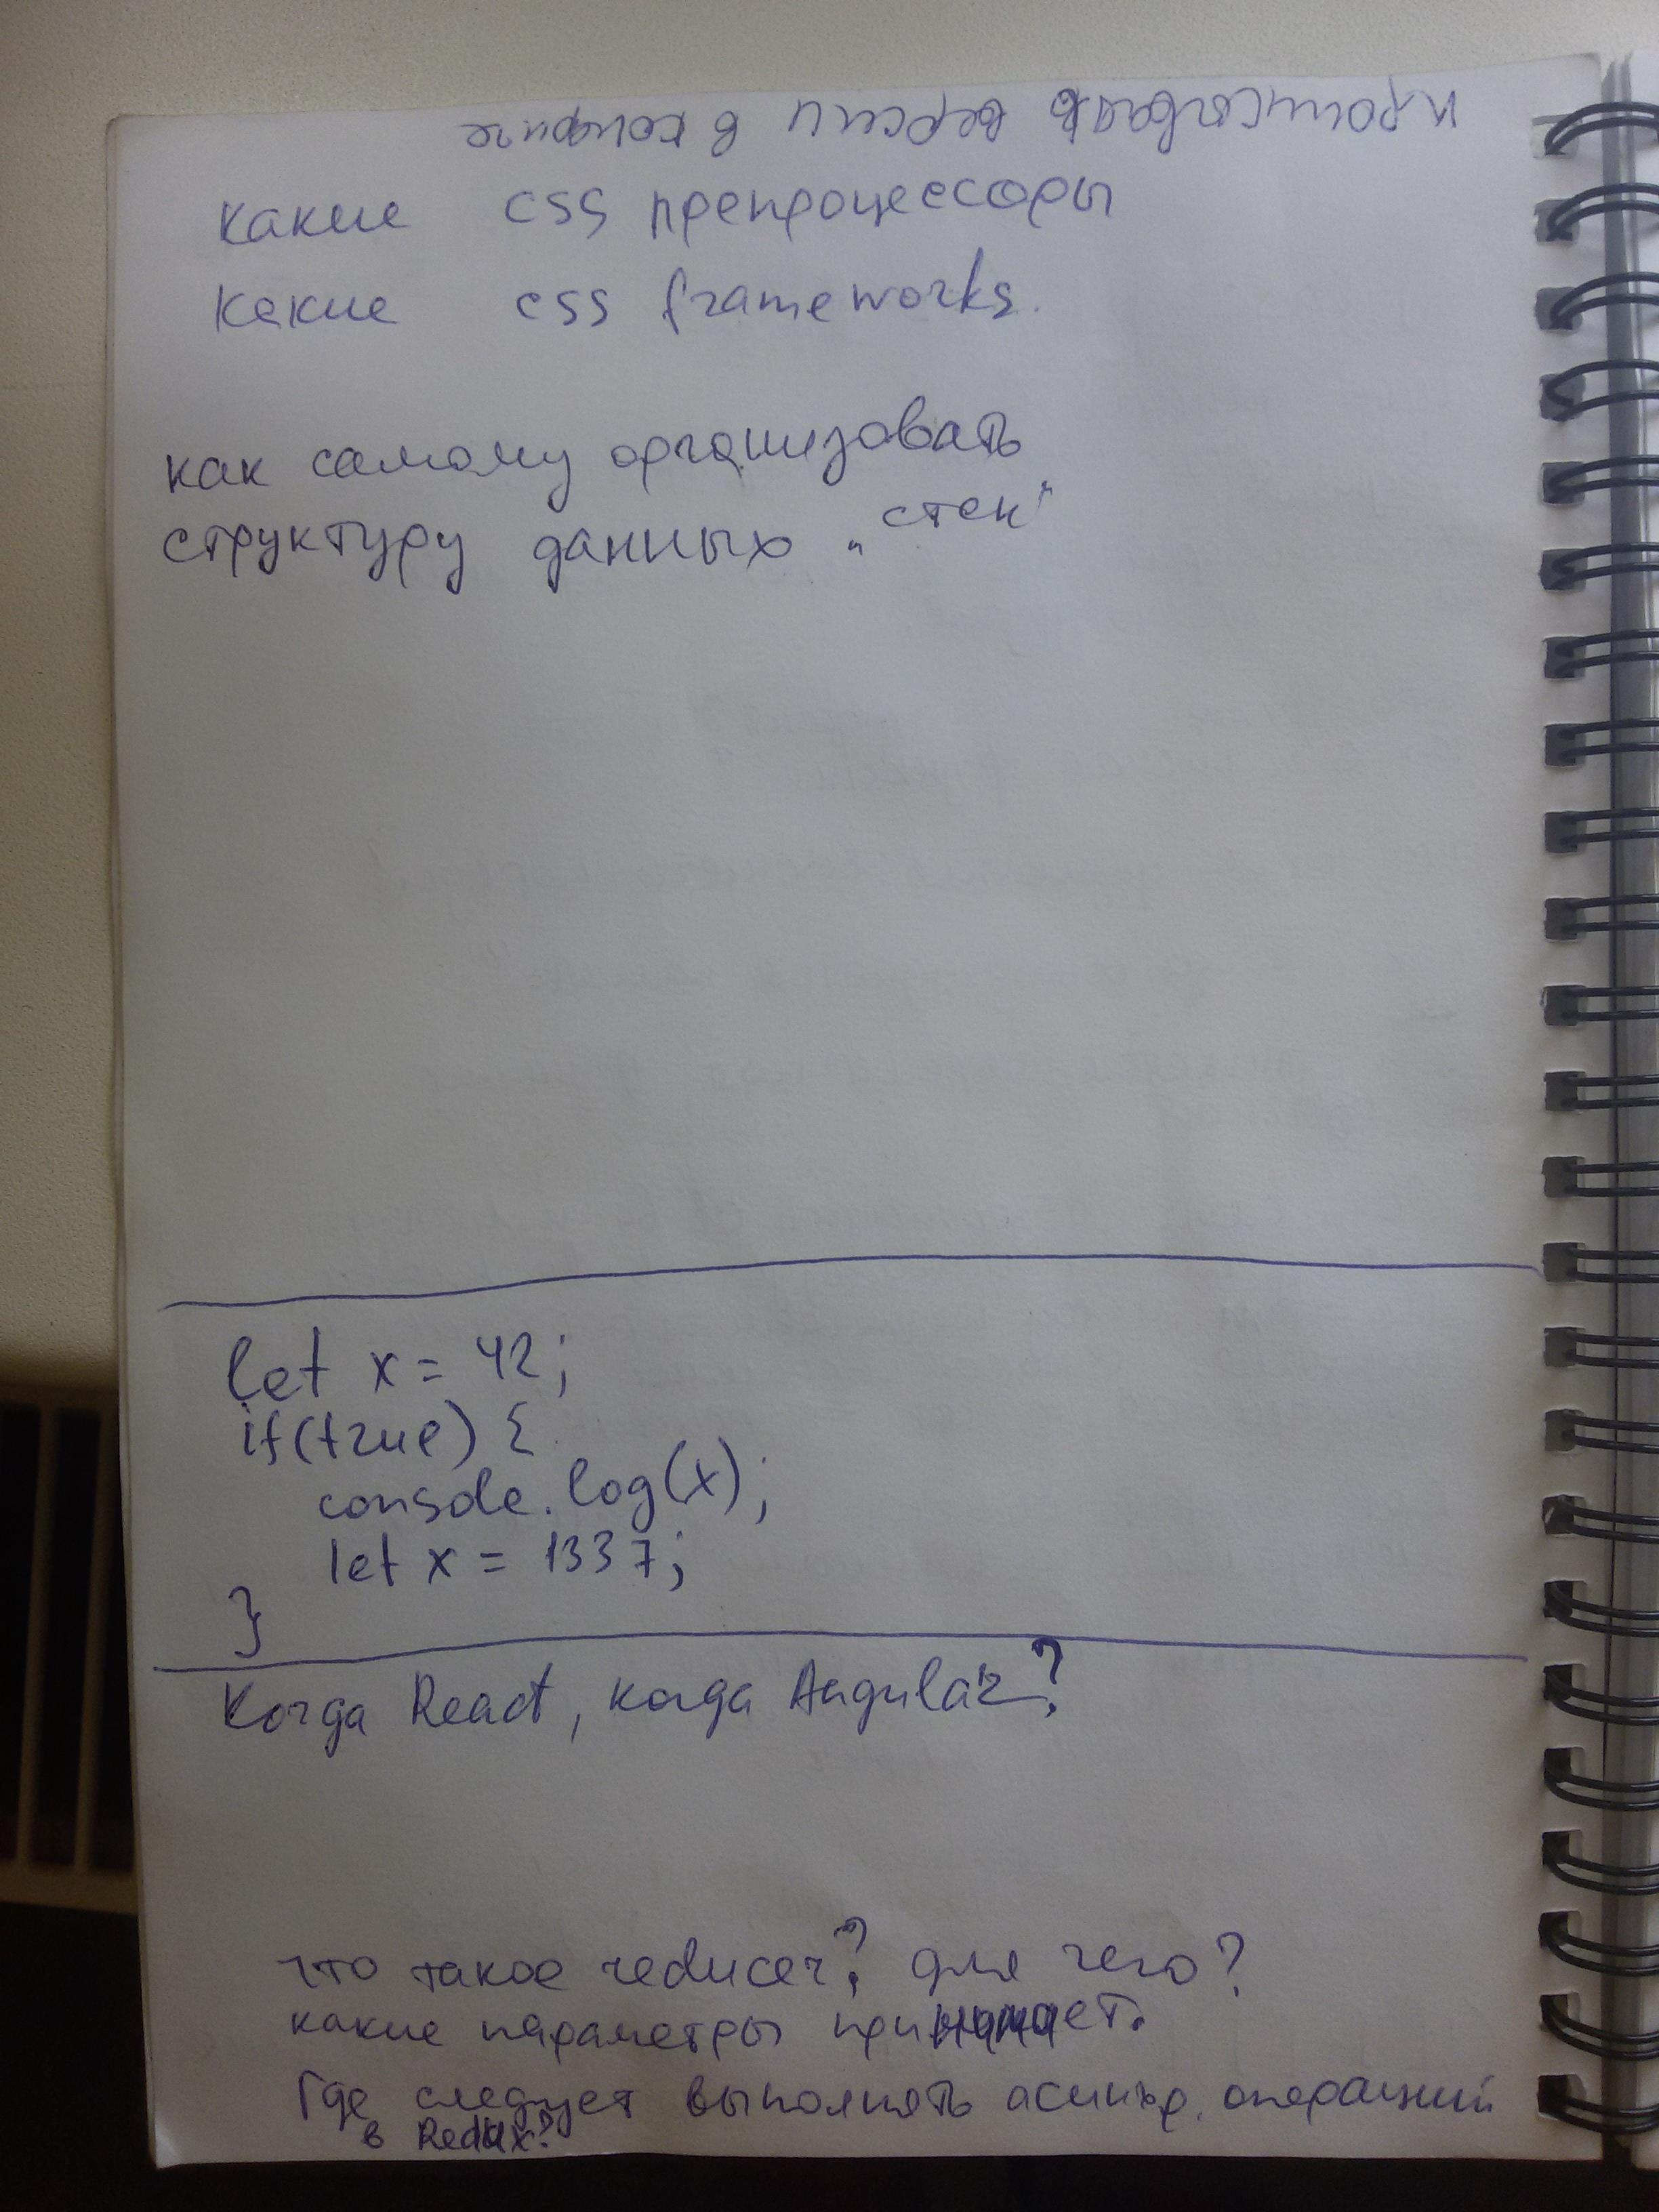 какие css препроцессоры
какие css frameworks.
как самому организовать
структуру данных „стек"
let x = 42;
if(true) {
console.log(x);
let x = 1337;
}
Когда React, когда Angular?
что такое reducer? для чего?
какие параметры принимает.
Где следует выполнять асинхр. операций
в Redux?